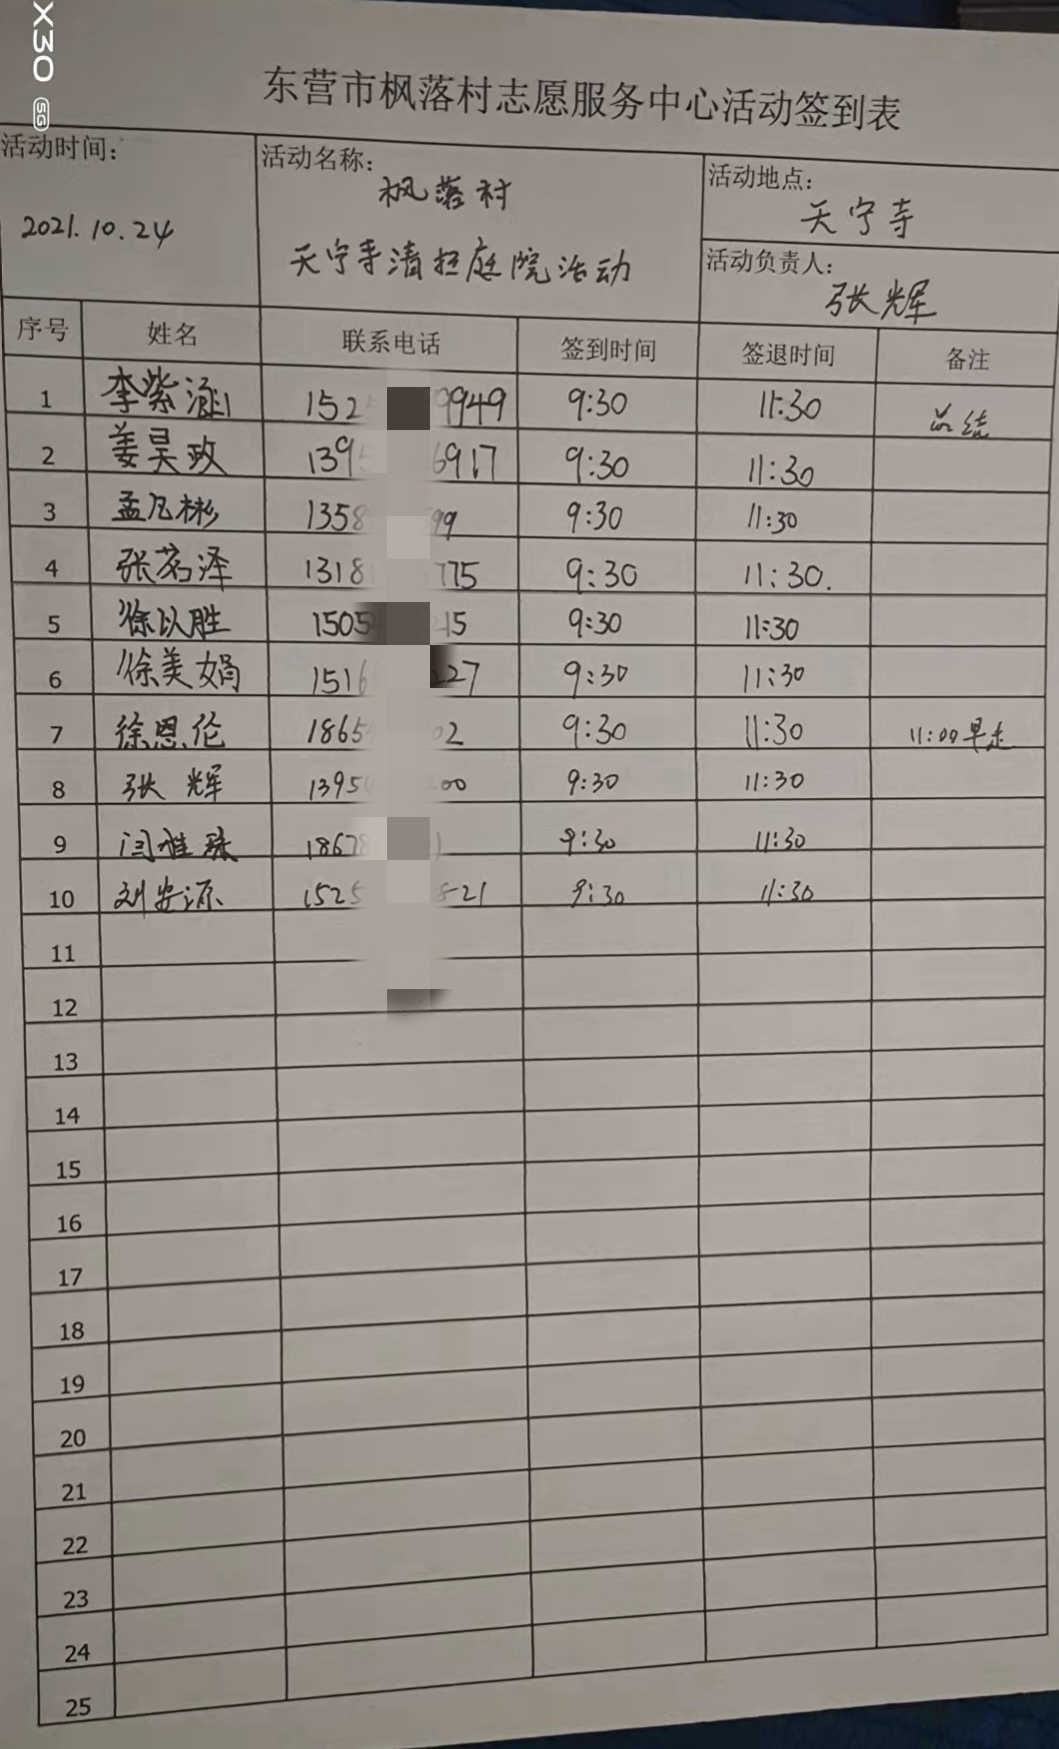 X30 5G
东营市枫落村志愿服务中心活动签到表
活动时间：
2021.10.24
活动名称：
枫落村
天宁寺清扫庭院活动
活动地点：
天宁寺
活动负责人：
张辉
序号 姓名 联系电话 签到时间 签退时间 备注
1 李紫涵 152 9949 9:30 11:30 总结
2 姜昊政 139 6917 9:30 11:30
3 孟凡彬 1358 99 9:30 11:30
4 张茗泽 1318 775 9:30 11:30.
5 徐以胜 1505 215 9:30 11:30
6 徐美娟 1516 227 9:30 11:30
7 徐恩伦 1865 02 9:30 11:30 11:00早走
8 张辉 1395 00 9:30 11:30
9 闫雅 1867 9:30 11:30
10 刘安源 1525 21 9:30 11:30
11
12
13
14
15
16
17
18
19
20
21
22
23
24
25